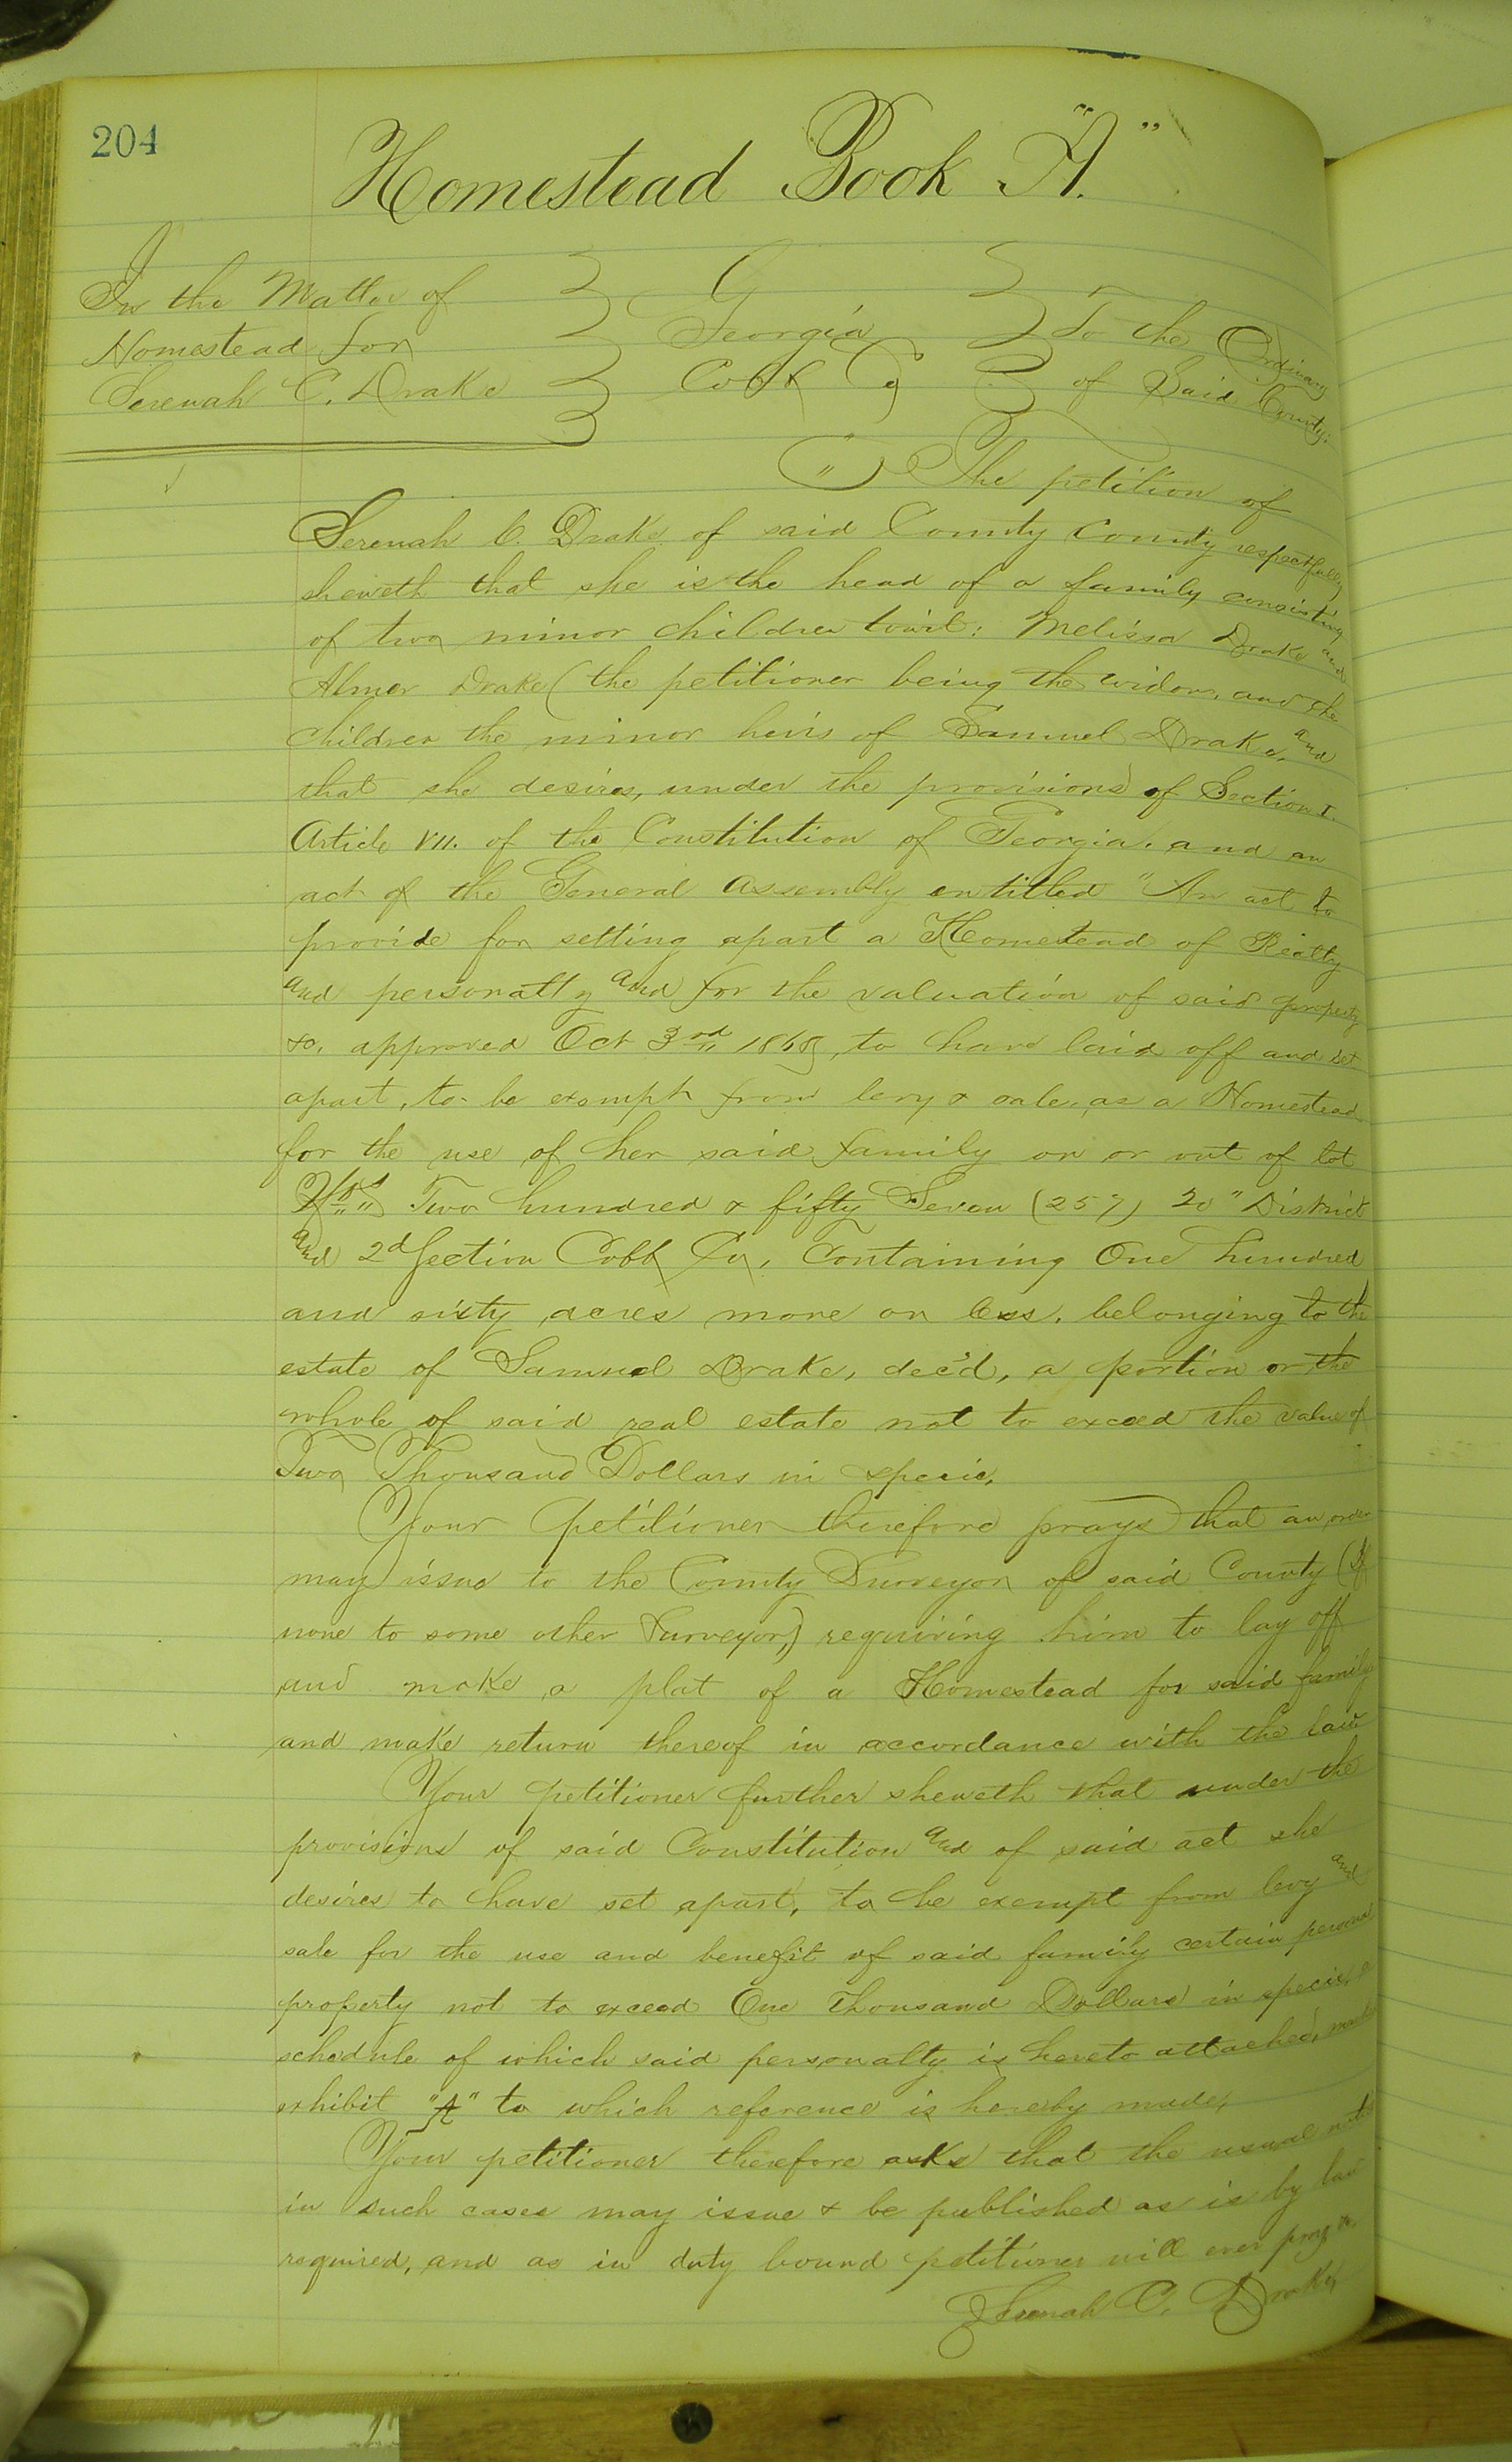 204
Homestead Book "A."
In the Matter of
Homestead for
Serenah C. Drake
Georgia
Cobb Co
To the Ordinary
of Said County:
" The petition of
Serenah C. Drake of said County County respectfully
sheweth that she is the head of a family consisting
of two minor children towit: Melissa Drake and
Almer Drake (the petitioner being the widow, and the
children the minor heirs of Samuel Drake, and
that she desires, under the provisions of Section I.
Article VII. of the Constitution of Georgia, and an
act of the General Assembly entitled "An act to
provide for setting apart a Homestead of Realty
and personalty and for the valuation of said property
&c, approved Oct 3rd 1868, to have laid off and set
apart, to be exempt from levy & sale, as a Homestead
for the use of her said family on or out of lot
Two hundred & fifty Seven (257) 20" District
and 2d Section Cobb Co, Containing One hundred
and sixty acres more or less, belonging to the
estate of Samuel Drake, dec'd, a portion or the
whole of said real estate not to exceed the value of
Two Thousand Dollars in specie.
Your petitioner therefore prays that an order
may issue to the County Surveyor of said County (if
none to some other Surveyor,) requiring him to lay off
and make a plat of a Homestead for said family
and make return thereof in accordance with the law
Your petitioner further sheweth that under the
provisions of said Constitution and of said act she
desires to have set apart, to be exempt from levy and
sale for the use and benefit of said family certain personal
property not to exceed One Thousand Dollars in specie, a
schedule of which said personalty is hereto attached, marked
exhibit "A" to which reference is hereby made,
Your petitioner therefore asks that the usual notice
in such cases may issue & be published as is by law
required, and as in duty bound petitioner will ever pray &c.
Serenah C. Drake